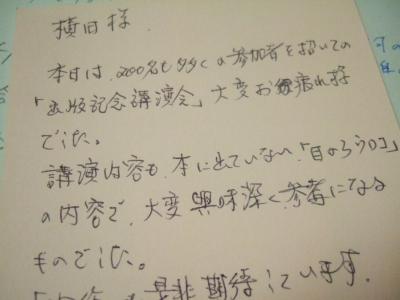 横田様
本日は、200名も多くの参加者を招いての
「出版記念講演会」大変お疲れ様
でした。
講演内容も、本に出ていない、「目のうろこ」
の内容で、大変興味深く、参考になる
ものでした。
是非期待しています。